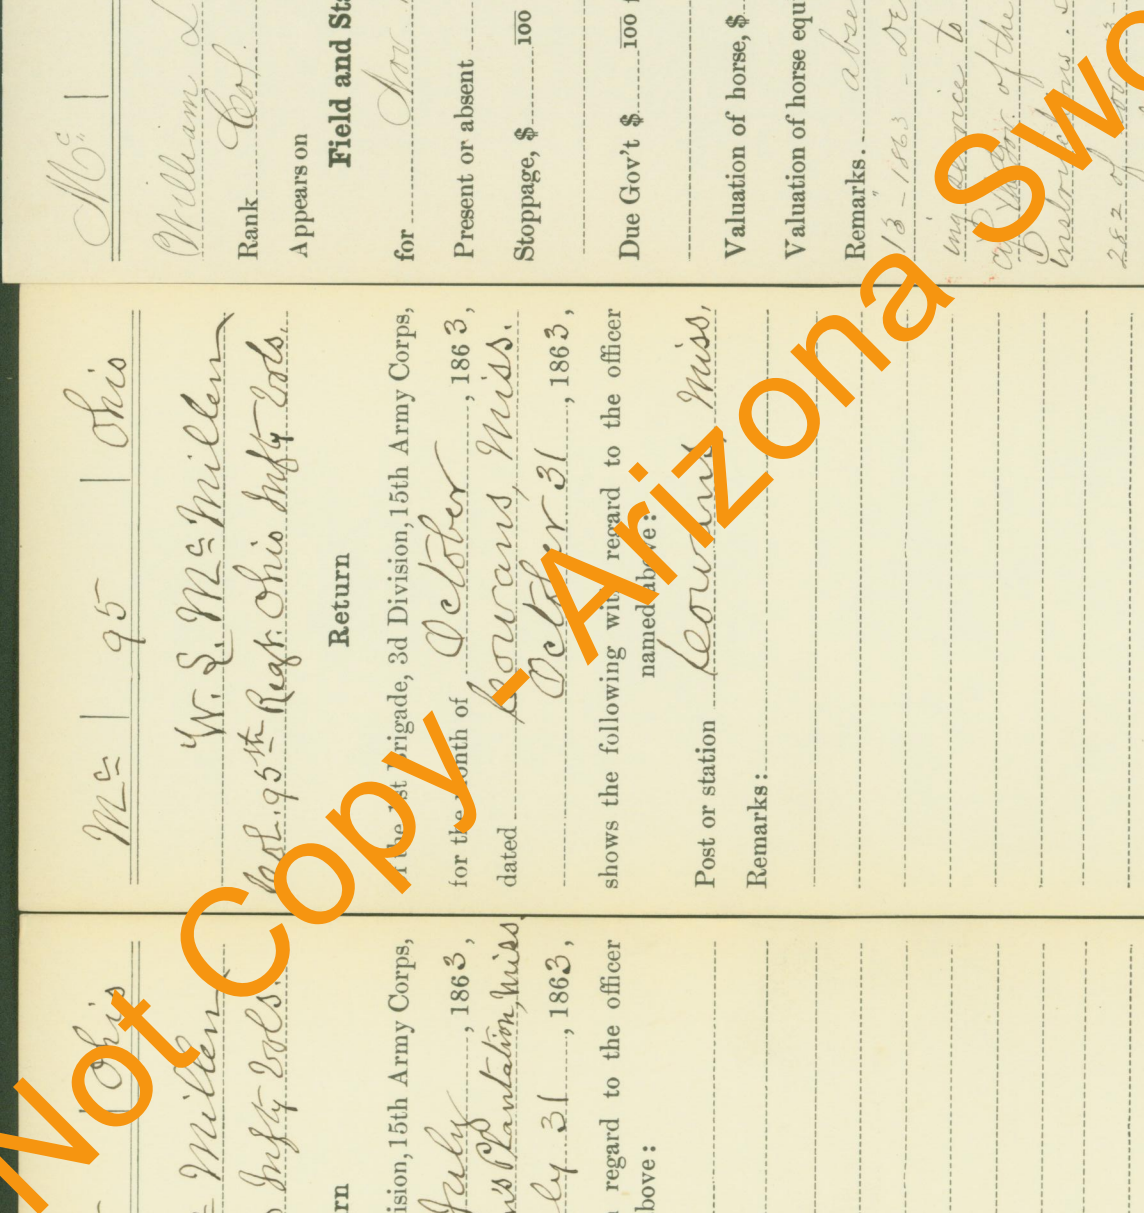 Mc |
William L
Rank Col.
Appears on
Field and Sta
for Nov
Present or absent
Stoppage, $ 100
Due Gov't $ 100 f
Valuation of horse, $
Valuation of horse equ
Remarks. abse
13 - 1863 - De
ing service to
of the
Instructions.
282 of
Mc | 95 | Ohio
W. L. McMillen
Col. 95th Regt. Ohio Infty Vols.
Return
f the 1st Brigade, 3d Division, 15th Army Corps,
for the month of October, 1863,
dated Cowans, Miss.
October 31, 1863,
shows the following with regard to the officer
named above:
Post or station Cowans, Miss,
Remarks:
| Ohio
c Millen
Infty Vols.
rn
ision, 15th Army Corps,
July, 1863,
n's Plantation, Miss.
ly 31, 1863,
regard to the officer
bove:
Not Copy - Arizona Swo